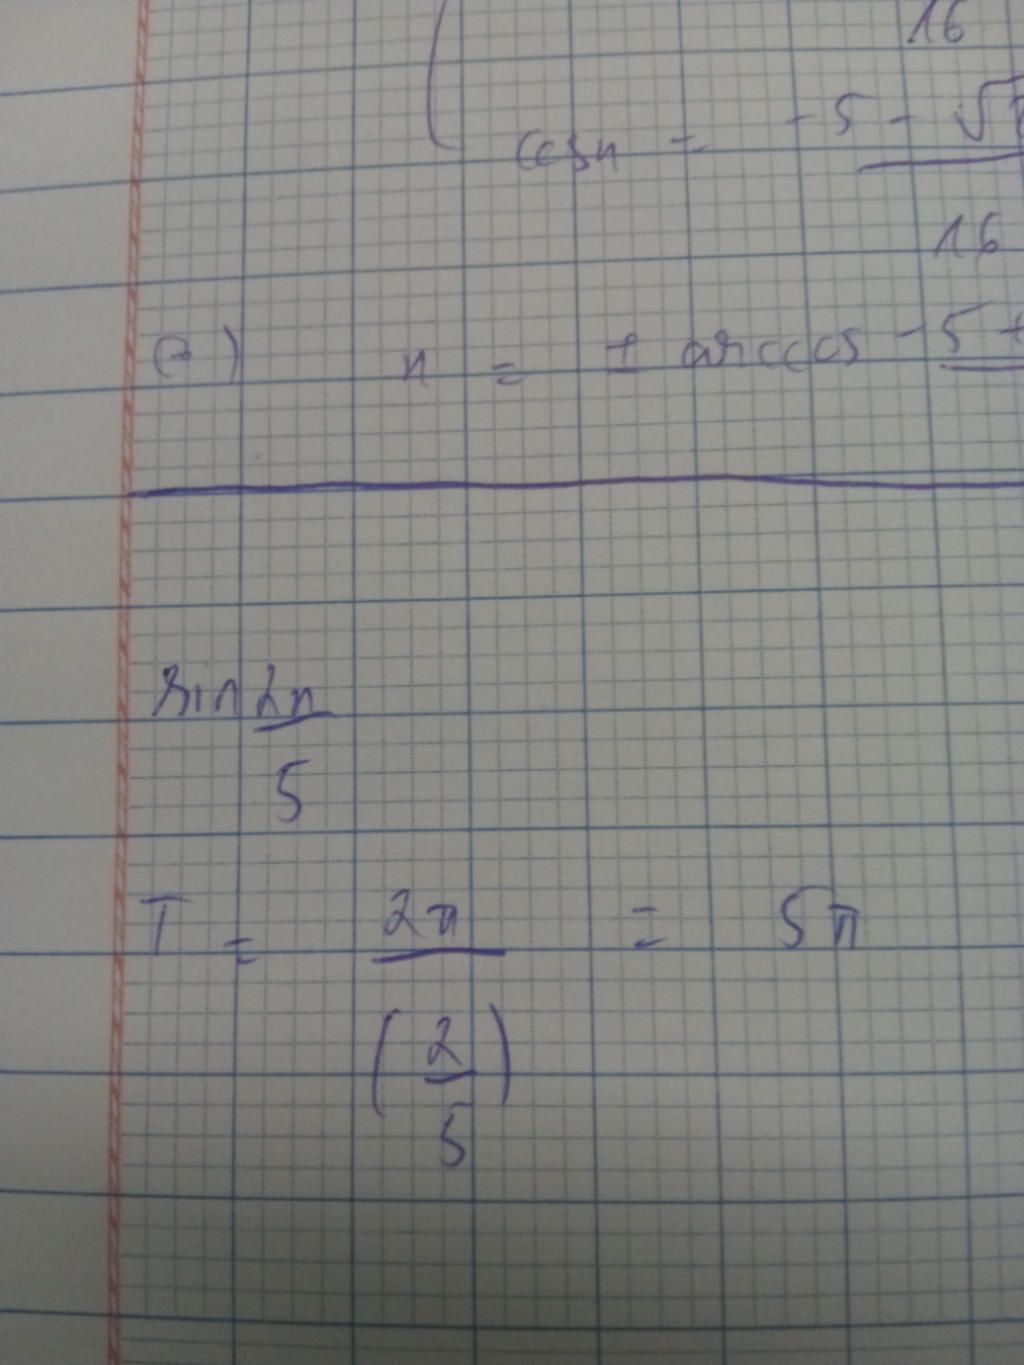 16
cosx = -5 - √
16
(=) x = ± arccos -5 +
sin 2x
5
T = 2π = 5π
(2
5)